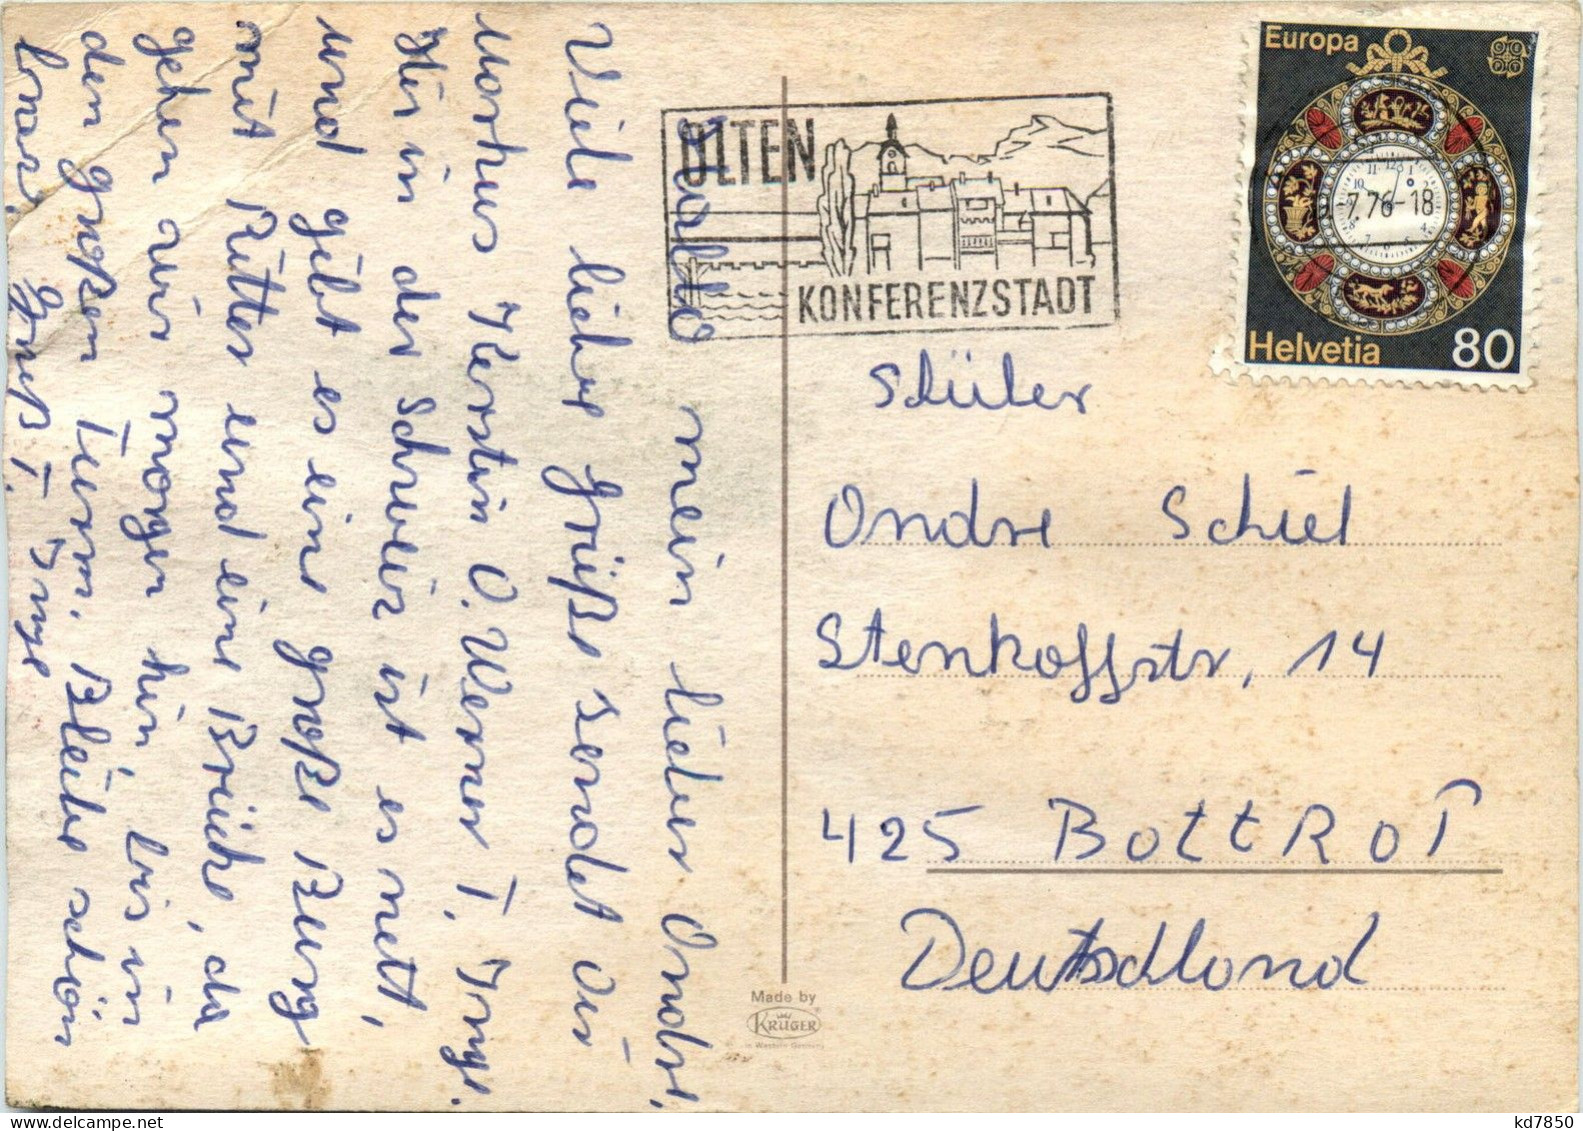 Hallo mein lieber Ondre,
Viele liebe Grüße sendet dir
Kerstin O. Werner T, Inge.
Hir in der Schweiz ist es nett,
und gibt es eine große Burg
mit Ritter und eine Brücke, da
gehen wir morgen hin, bis in
den großen Turm. Bleibe schön
brav. Gruß T. Inge
OLTEN
KONFERENZSTADT
Europa
7.76-18
Helvetia 80
Schüler
Ondre Schiel
Stenkoffstr, 14
425 BottRoT
Deutschlond
Made by
KRÜGER
in Western Germany
kd7850